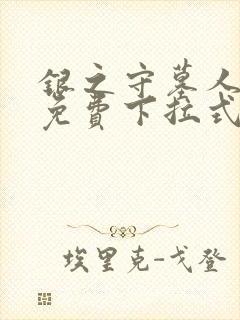 银之守墓人
免費下拉式
埃里克-戈登